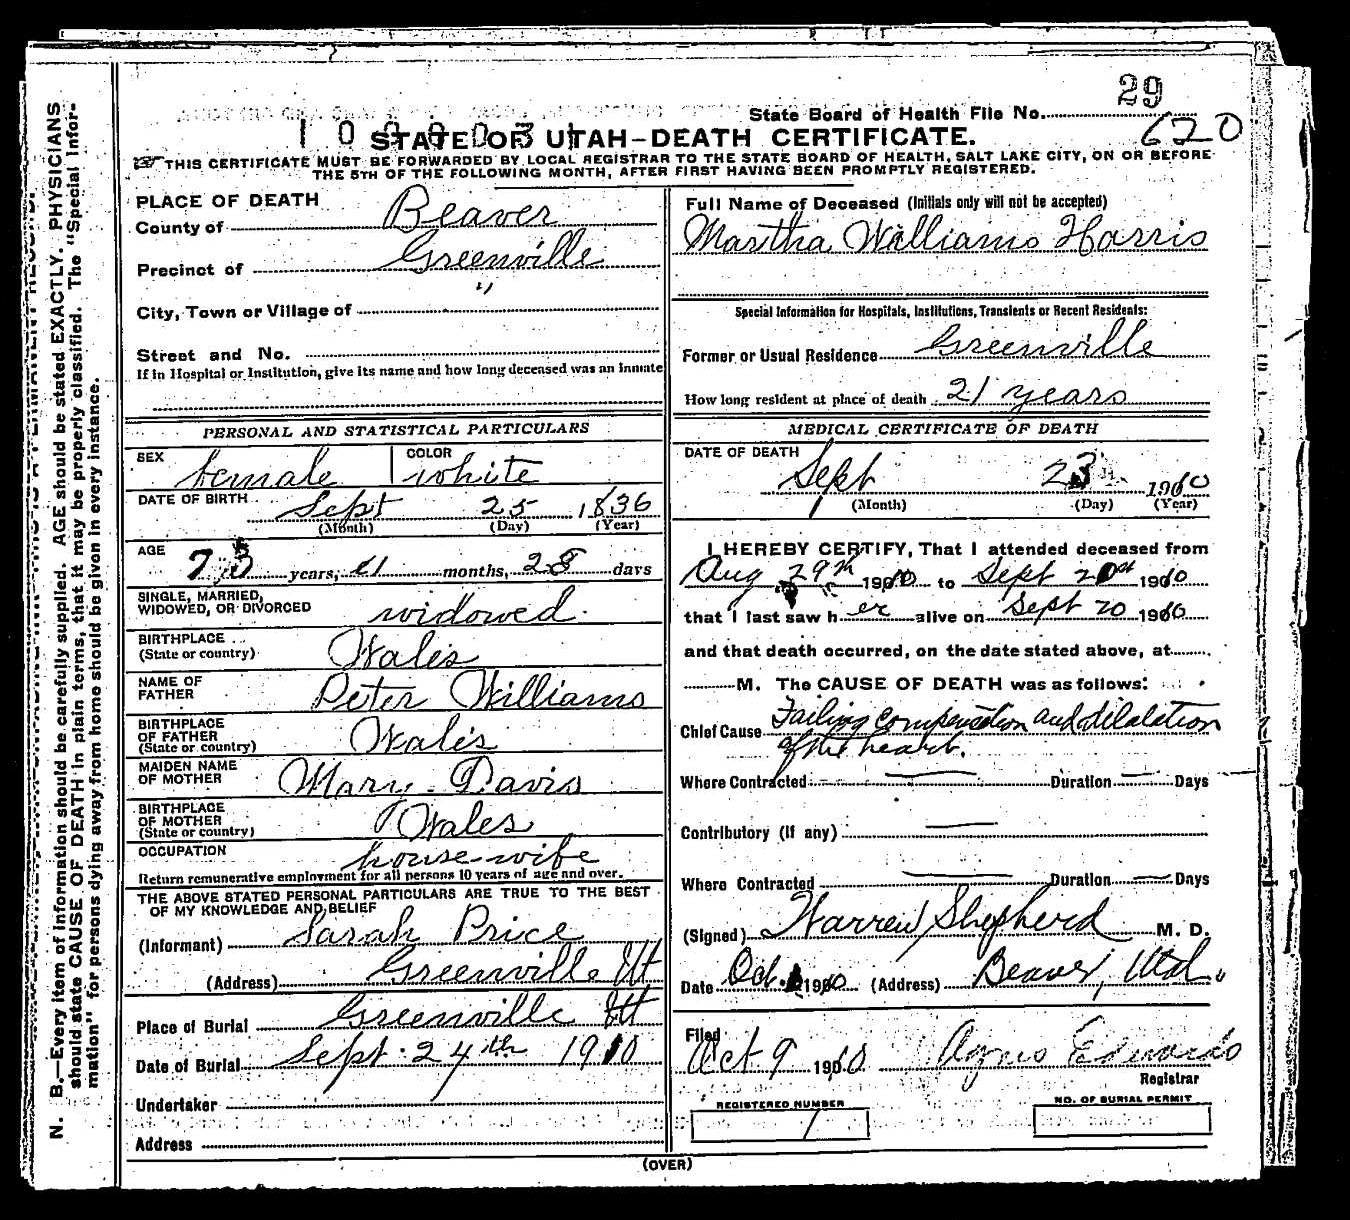 29
State Board of Health File No.
620
1000031
STATE OF UTAH—DEATH CERTIFICATE.
THIS CERTIFICATE MUST BE FORWARDED BY LOCAL REGISTRAR TO THE STATE BOARD OF HEALTH, SALT LAKE CITY, ON OR BEFORE
THE 5TH OF THE FOLLOWING MONTH, AFTER FIRST HAVING BEEN PROMPTLY REGISTERED.
PLACE OF DEATH
County of Beaver
Precinct of Greenville
City, Town or Village of "
Street and No.
If in Hospital or Institution, give its name and how long deceased was an inmate
PERSONAL AND STATISTICAL PARTICULARS
SEX female COLOR white
DATE OF BIRTH Sept 25 1836
(Month) (Day) (Year)
AGE 73 years, 11 months, 28 days
SINGLE, MARRIED,
WIDOWED, OR DIVORCED widowed
BIRTHPLACE
(State or country) Wales
NAME OF
FATHER Peter Williams
BIRTHPLACE
OF FATHER
(State or country) Wales
MAIDEN NAME
OF MOTHER Mary Davis
BIRTHPLACE
OF MOTHER
(State or country) Wales
OCCUPATION housewife
Return remunerative employment for all persons 10 years of age and over.
THE ABOVE STATED PERSONAL PARTICULARS ARE TRUE TO THE BEST
OF MY KNOWLEDGE AND BELIEF
(Informant) Sarah Price
(Address) Greenville Ut
Place of Burial Greenville Ut
Date of Burial Sept. 24th 1910
Undertaker
Address
Full Name of Deceased (Initials only will not be accepted)
Martha Williams Harris
Special Information for Hospitals, Institutions, Transients or Recent Residents:
Former or Usual Residence Greenville
How long resident at place of death 21 years
MEDICAL CERTIFICATE OF DEATH
DATE OF DEATH
Sept 23 1910
(Month) (Day) (Year)
I HEREBY CERTIFY, That I attended deceased from
Aug 29th 1910 to Sept 21st 1910
that I last saw her alive on Sept 20 1910
and that death occurred, on the date stated above, at
M. The CAUSE OF DEATH was as follows:
Chief Cause Failing compensation and dilalation
of the heart.
Where Contracted — Duration — Days
Contributory (If any) —
Where Contracted — Duration — Days
(Signed) Warren Shepherd M. D.
Date Oct. 1910 (Address) Beaver, Utah.
Filed
Oct 9 1910 Agnes Edwards
Registrar
REGISTERED NUMBER
1
NO. OF BURIAL PERMIT
(OVER)
N. B.—Every item of information should be carefully supplied. AGE should be stated EXACTLY. PHYSICIANS
should state CAUSE OF DEATH in plain terms, that it may be properly classified. The "Special Infor-
mation" for persons dying away from home should be given in every instance.